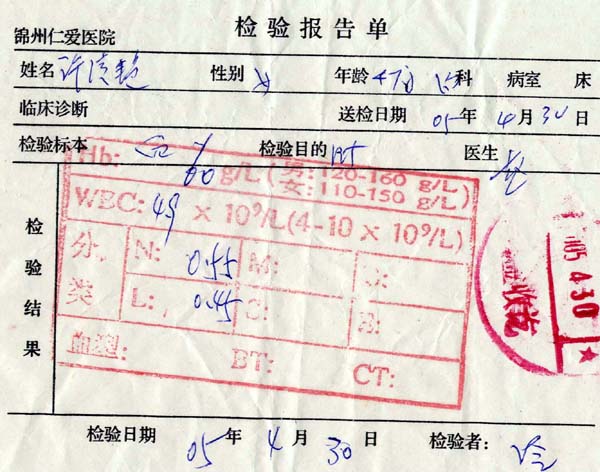 检验报告单
锦州仁爱医院
姓名 许 性别 女 年龄 47岁 科 病室 床
临床诊断 送检日期 05年4月30日
检验标本 检验目的 医生
Hb: 60 g/L (男:120-160 g/L
女:110-150 g/L)
WBC: 4.9 × 10⁹/L (4-10 × 10⁹/L)
检验结果
分类 N: 0.55 M:
L: 0.45
血型: BT: CT:
05 4 30
检验日期 05年4月30日 检验者: